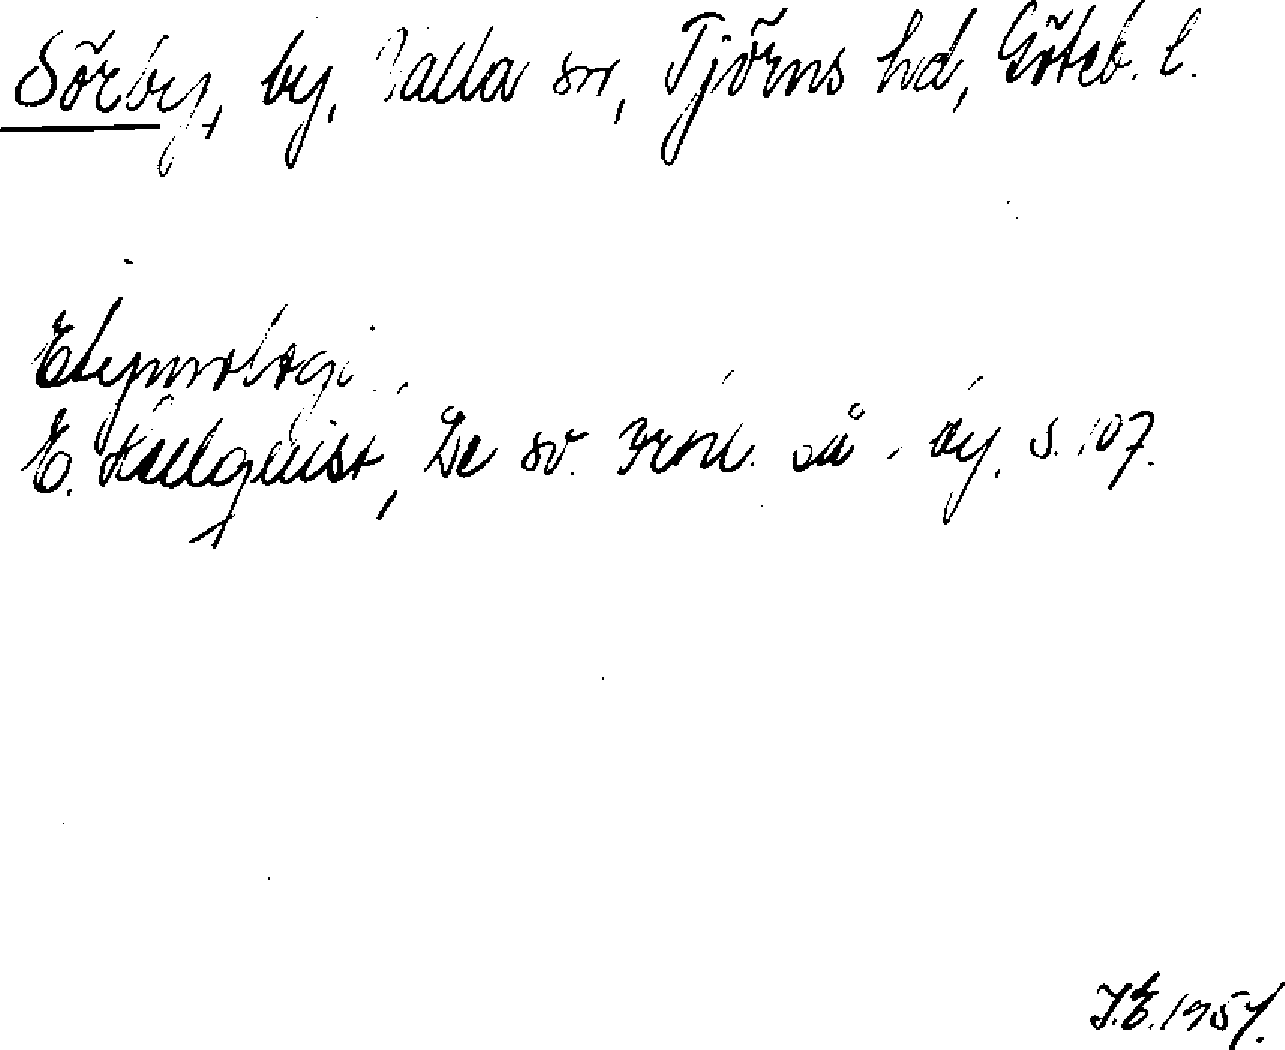 Sörby, by, Valla sn, Tjörns hd, Göteb. l.
Etymologi:
E. Hellquist, De sv. ortn. på -by. s. 107.
J.E. 1957.